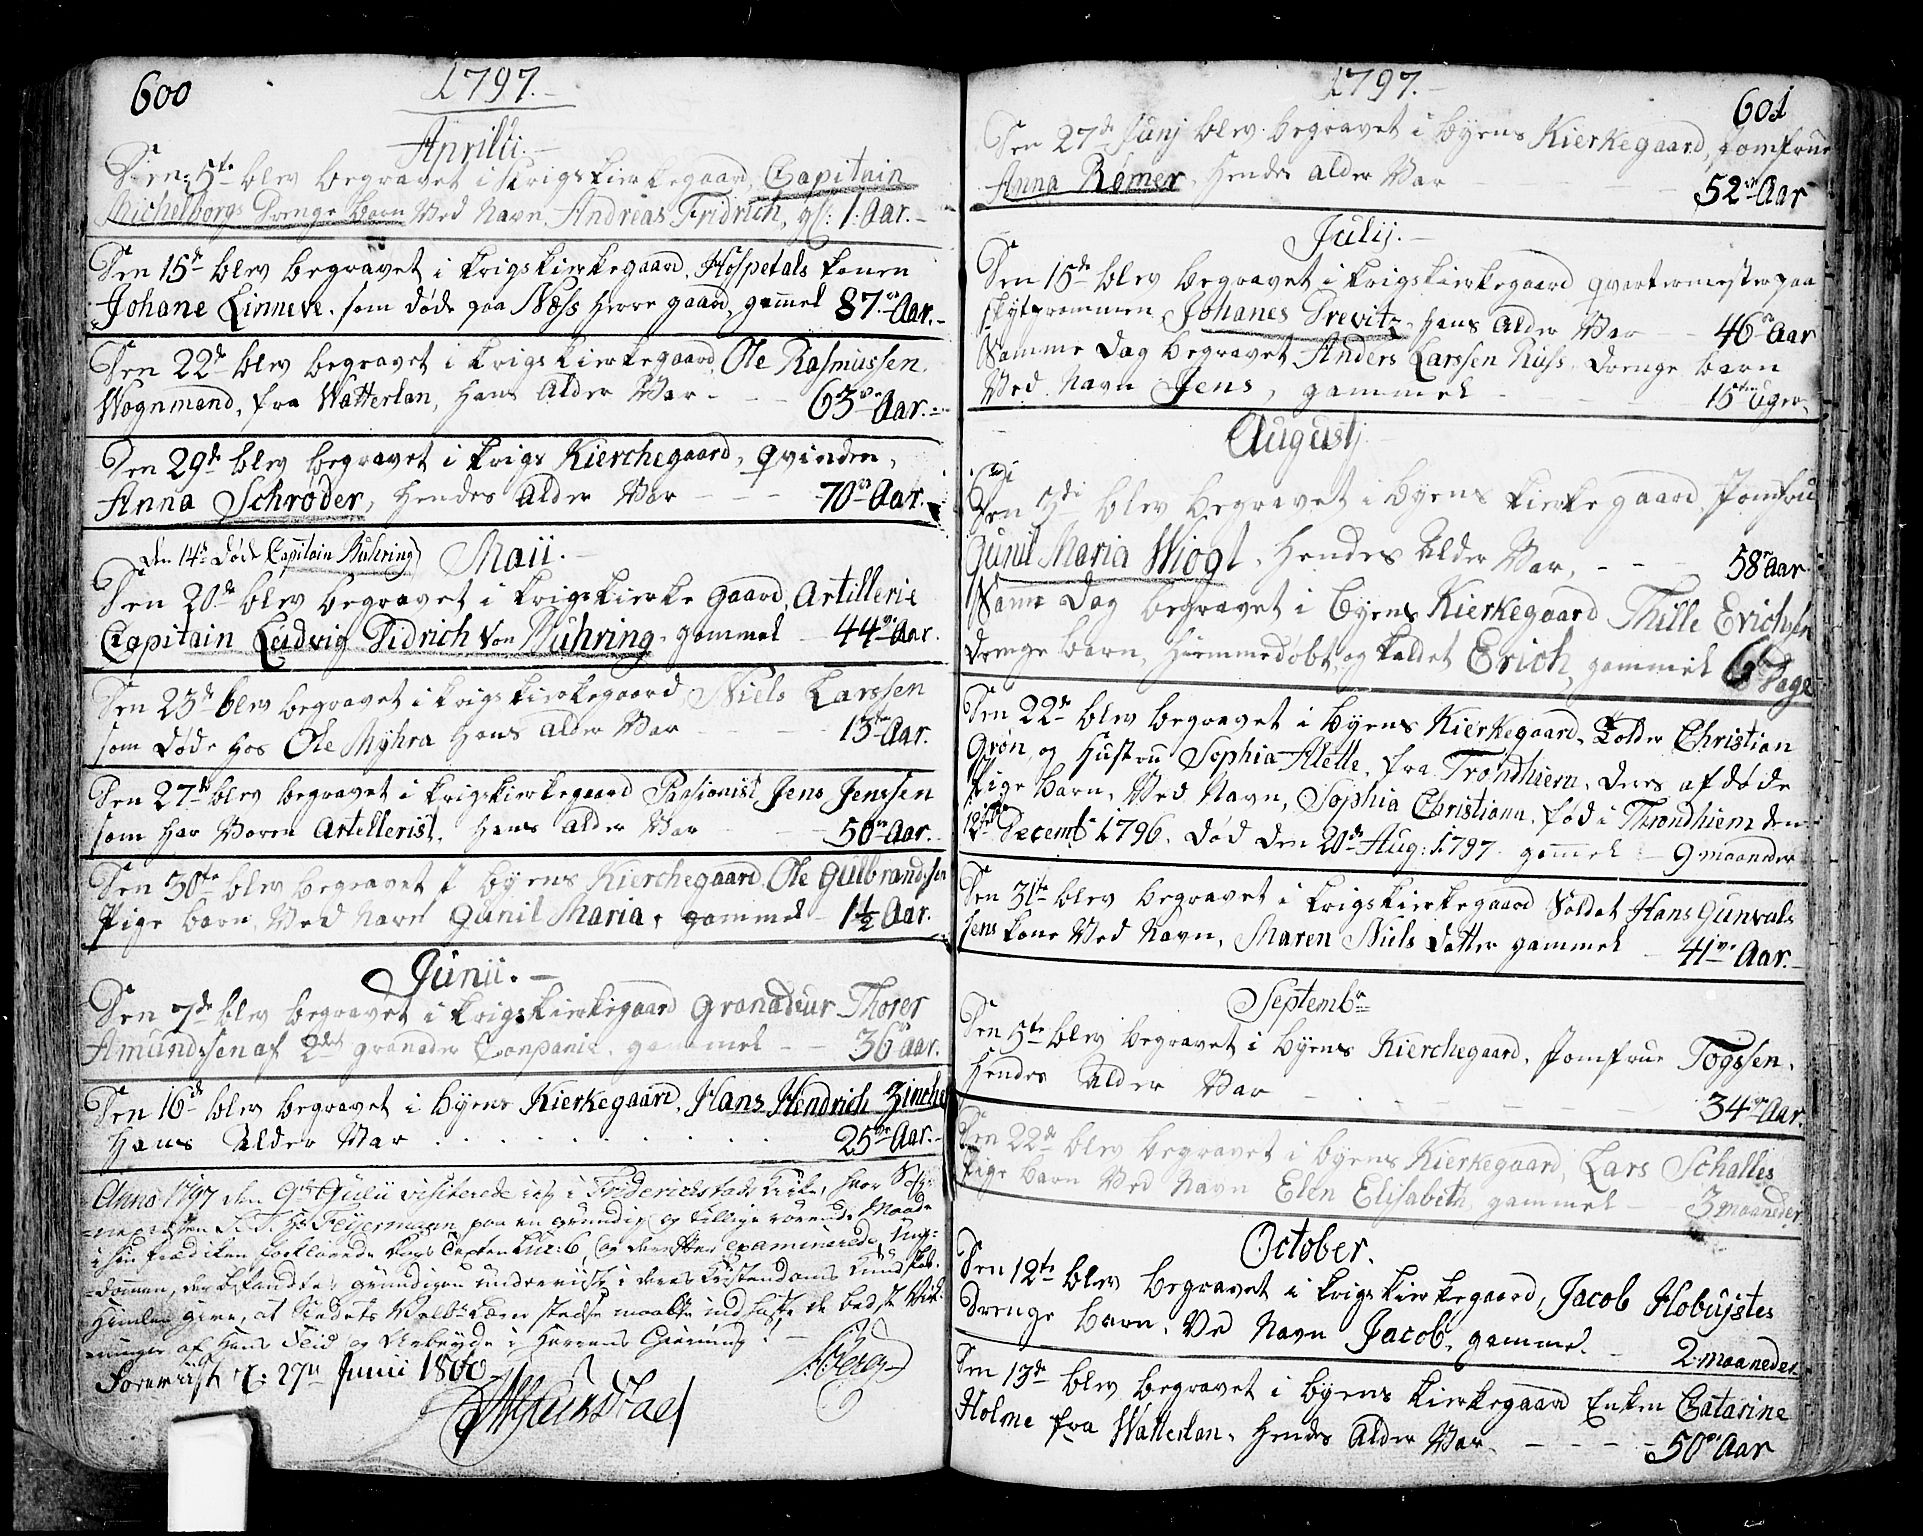 600
1797.
Aprilii.
Den 5te blev begravet i Krigskierkegaard, Capitain
Michelborgs Drenge barn Ved Navn, Andreas Fridrich, gl: 1. Aar.
Den 15de blev begravet i Krigskierkegaard, Hospetals konen
Johane Linneve, som døde paa Næss Herre gaard, gammel 87ve Aar.
Den 22de blev begravet i Krigs Kierkegaard, Ole Rasmussen.
Wognmand, fra Watterlan, Hans Alder Var - - 63ve Aar.
Den 29de blev begravet i Krigs Kierchegaard, Qvinden,
Anna Schrøder, Hendes Alder Var - - - 70ve Aar.
den 14de døde Capitain Buhring
Maii.
Den 20de blev begravet i Krigskierke gaard, Artillerie
Capitain Ludvig Didrich Von Buhring, gammel - 44ve Aar.
Den 23de blev begravet i Krigskierkegaard, Niels Larssen
som døde hos Ole Myhra Hans Alder Var - - - 13ten Aar.
Den 27de blev begravet i Krigskierkegaard Pantionist Jens Jenssen
som har Været Artellerist, Hans Alder Var - - 50ve Aar.
Den 30te blev begravet I byens Kierchegaard, Ole Gulbrandsen
Pige barn, Ved Navn Gunil Maria, gammel - 1½ Aar.
Junii.
Den 7de blev begravet i Krigskierkegaard Granadeur Thorer
Amundssen af 2det Granader Conpanie, gammel - - 36ve Aar.
Den 16de blev begravet i byens Kierkegaard, Hans Hendrich Zinche
Hans Alder Var . . . . . . . 25ve Aar.
Anno 1797 den 9de Julii visiterede ieg i Friderichstads Kirke, hvor
S. T. Hr Feyermann, paa en grundig og tillige rørende Maade
i sin Prædiken forklarede Cap: 6, og derefter examinerede Ung-
-dommen, der befandtes grundigen underviist i deres Christendoms Kundskab.
Himlen give, at maatte indhøste de bedste Virk-
-ninger af Hans Flid og Arbeyde i Herrens Gierning!
Foreviist d: 27de Junii 1800
601
1797.
Den 27de Junj blev begravet i byens Kierkegaard, Jomfrue
Anna Rømer, Hendes Alder Var - - 52ve Aar
Julij.
Den 15de blev begravet i Krigskierkegaard Qvartermester paa
Skytprammen, Johanes Grevitz, Hans Alder Var - - 46ve Aar
Samme Dag begravet Anders Larssen Huss, Drenge barn
Ved Navn Jens, gammel - - - 15ten Uger,
Augustj
Den 5di blev begravet i byens Kierke gaard, Jomfru
Gunil Maria Wiogt, Hendes Alder Var, - - - 58ve Aar.
Samme Dag begravet i Byens Kierkegaard Thille Erichsen
Drenge barn, Hiemmedøbt, og kaldet Erich, gammel 6 Dage
Den 22de blev begravet i byens Kierkegaard, Tolder Christian
Grøn, og Hustru Sophia Alette, fra Trondhiem, Deres afdøde
Pige barn, Ved Navn, Sophia Christiana, fød i Throndhiem den
12te Decemb: 1796. Død den 20de Aug: 1797. gammel - 9 maaneder
Den 31te blev begravet i Krigskierkegaard Soldat Hans Gunvals
sens kone Ved Navn, Maren Niels Datter gammel - 41ve Aar.
Septembr
Den 5te blev begravet i byens Kierchegaard, Jomfrue Togssen,
Hendes Alder Var - - - - - 34ve Aar.
Den 22de blev begravet i byens Kierkegaard, Lars Schalles
Pige barn Ved Navn Elen Elisabeth, gammel - - 3 maaneder
October.
Den 12te blev begravet i Krigskierkegaard, Jacob Hobujstes
Drenge barn, Ved Navn Jacob, gammel - 2 maaneder
Den 13de blev begravet i byens Kierkegaard Enken Catarine
Holme fra Watterlan, Hendes Alder Var. - - - - 50ve Aar